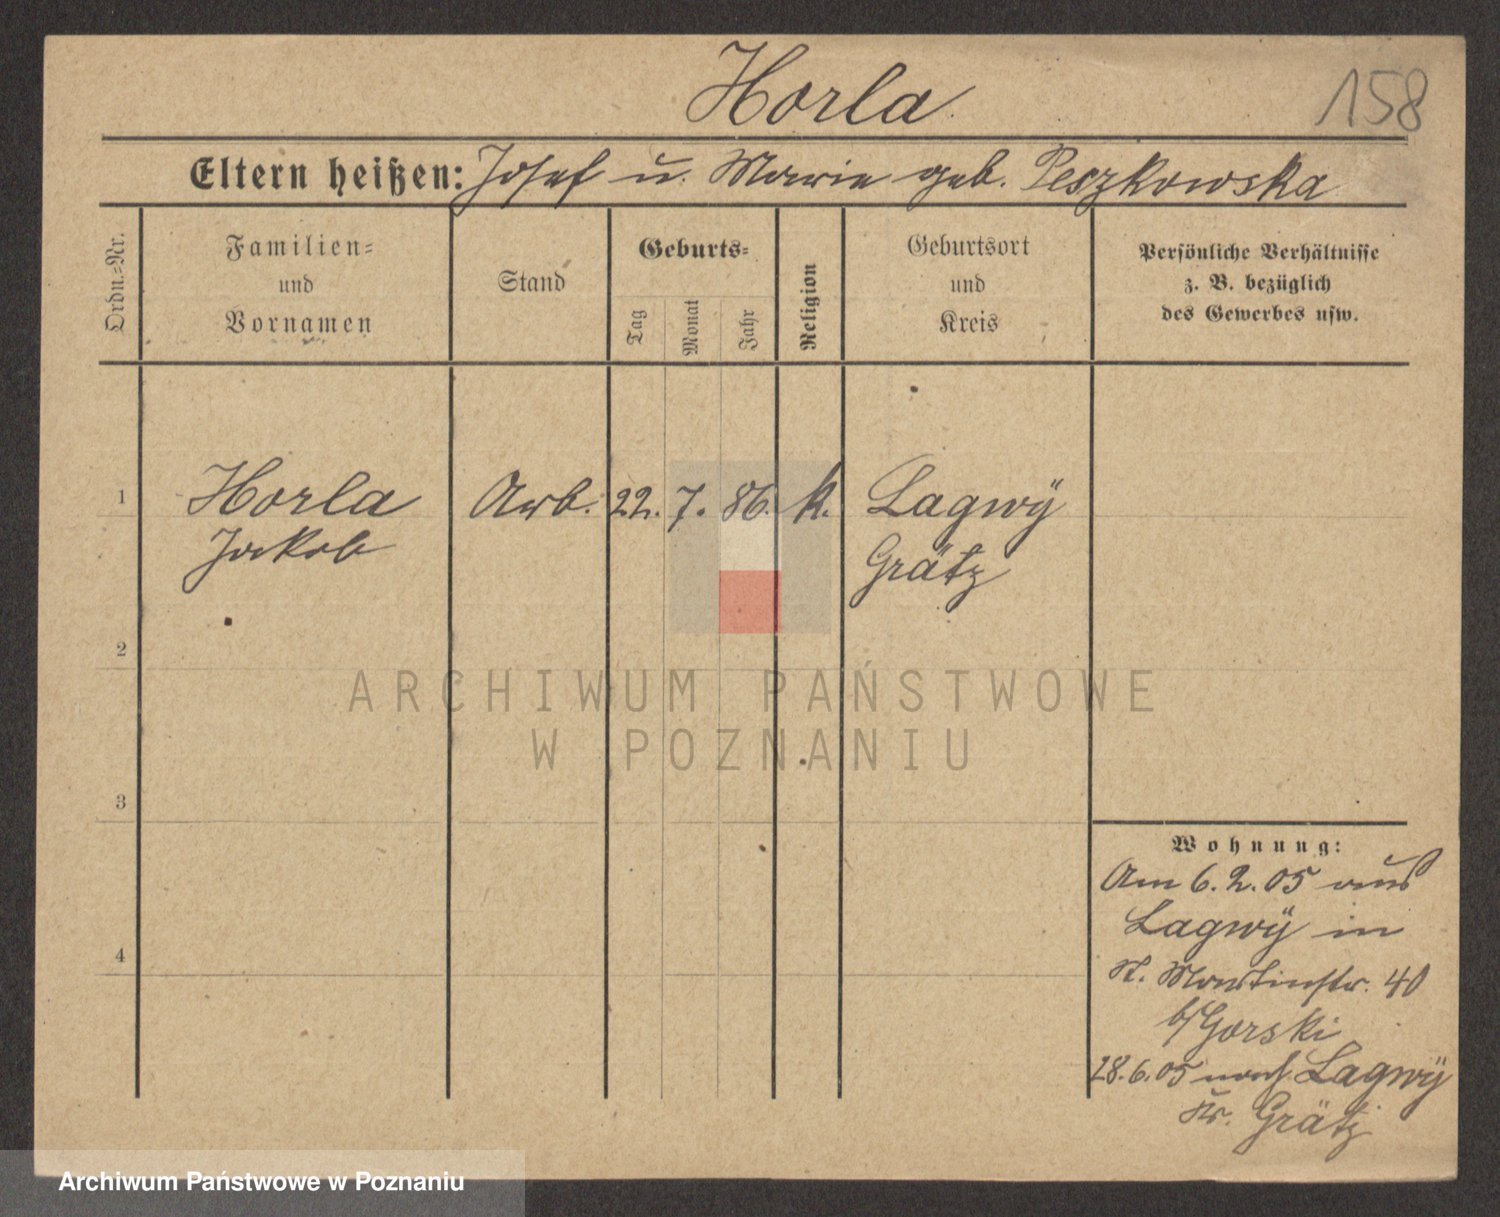 Horla
158
Eltern heißen: Josef u. Marie geb. Peszkowska
Ordn.=Nr.
Familien=
und
Vornamen
Stand
Geburts=
Tag
Monat
Jahr
Religion
Geburtsort
und
Kreis
Persönliche Verhältnisse
z. B. bezüglich
des Gewerbes usw.
1 Horla Arb. 22. 7. 86. k. Lagwÿ
Jakob Grätz
2
3
4
Wohnung:
Am 6.2.05 aus
Lagwÿ in
St. Martinstr. 40
b/Gorski
28.6.05 nach Lagwÿ
Kr. Grätz
ARCHIWUM PAŃSTWOWE
W POZNANIU
Archiwum Państwowe w Poznaniu